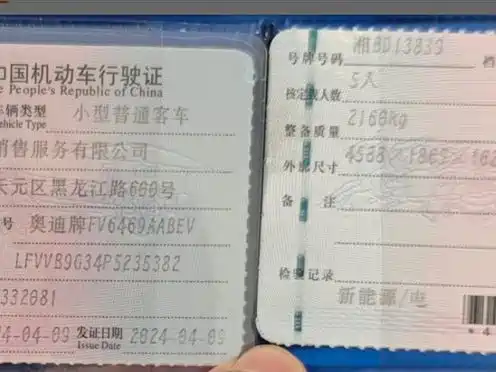 中国机动车行驶证
People's Republic of China
车辆类型 小型普通客车
Vehicle Type
销售服务有限公司
天元区黑龙江路660号
号 奥迪牌FV6469AABEV
LFVVB9G34P5235382
332081
04-09 发证日期 2024-04-09
Issue Date
号牌号码
核定载人数 5人
整备质量 2160kg
外廓尺寸
备 注
检验记录
新能源/电